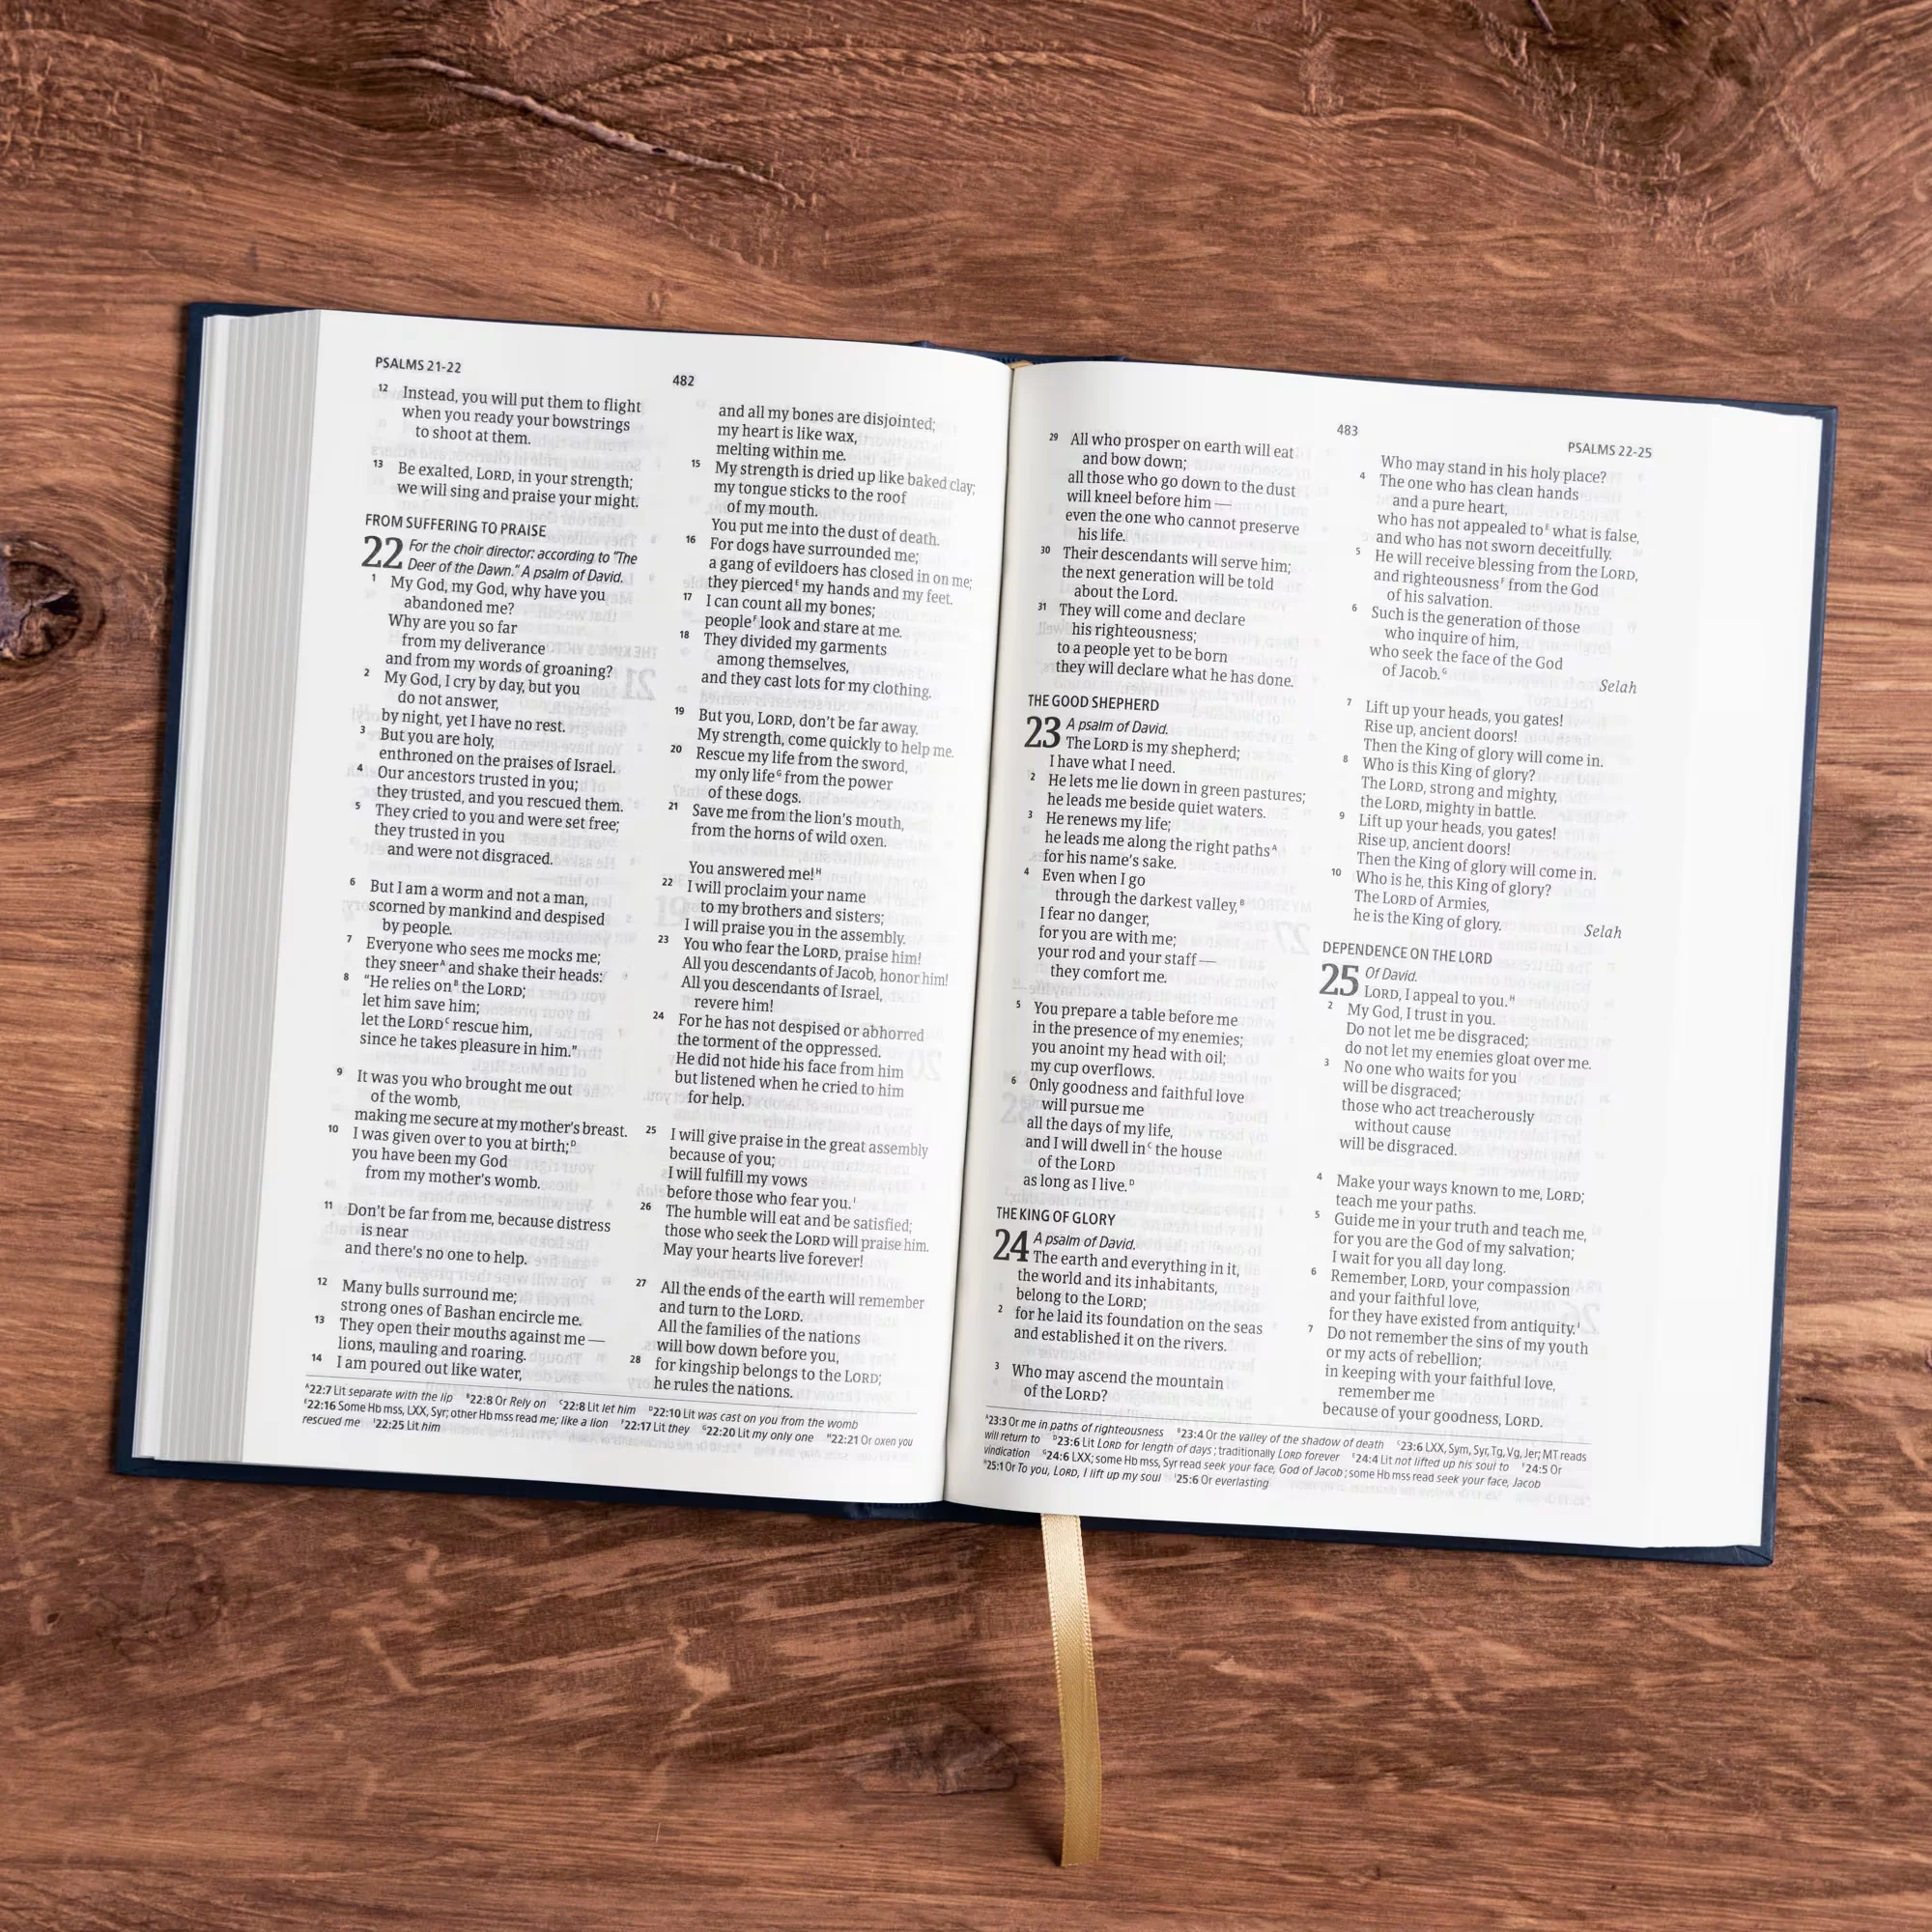 PSALMS 21-22
482
12 Instead, you will put them to flight
when you ready your bowstrings
to shoot at them.
13 Be exalted, LORD, in your strength;
we will sing and praise your might.
FROM SUFFERING TO PRAISE
22 For the choir director: according to "The
Deer of the Dawn." A psalm of David.
1 My God, my God, why have you
abandoned me?
Why are you so far
from my deliverance
and from my words of groaning?
2 My God, I cry by day, but you
do not answer,
by night, yet I have no rest.
3 But you are holy,
enthroned on the praises of Israel.
4 Our ancestors trusted in you;
they trusted, and you rescued them.
5 They cried to you and were set free;
they trusted in you
and were not disgraced.
6 But I am a worm and not a man,
scorned by mankind and despised
by people.
7 Everyone who sees me mocks me;
they sneer^A and shake their heads:
8 "He relies on^B the LORD;
let him save him;
let the LORD^C rescue him,
since he takes pleasure in him."
9 It was you who brought me out
of the womb,
making me secure at my mother's breast.
10 I was given over to you at birth;^D
you have been my God
from my mother's womb.
11 Don't be far from me, because distress
is near
and there's no one to help.
12 Many bulls surround me;
strong ones of Bashan encircle me.
13 They open their mouths against me —
lions, mauling and roaring.
14 I am poured out like water,
and all my bones are disjointed;
my heart is like wax,
melting within me.
15 My strength is dried up like baked clay;
my tongue sticks to the roof
of my mouth.
You put me into the dust of death.
16 For dogs have surrounded me;
a gang of evildoers has closed in on me;
they pierced^E my hands and my feet.
17 I can count all my bones;
people^F look and stare at me.
18 They divided my garments
among themselves,
and they cast lots for my clothing.
19 But you, LORD, don't be far away.
My strength, come quickly to help me.
20 Rescue my life from the sword,
my only life^G from the power
of these dogs.
21 Save me from the lion's mouth,
from the horns of wild oxen.
You answered me!^H
22 I will proclaim your name
to my brothers and sisters;
I will praise you in the assembly.
23 You who fear the LORD, praise him!
All you descendants of Jacob, honor him!
All you descendants of Israel,
revere him!
24 For he has not despised or abhorred
the torment of the oppressed.
He did not hide his face from him
but listened when he cried to him
for help.
25 I will give praise in the great assembly
because of you;
I will fulfill my vows
before those who fear you.^I
26 The humble will eat and be satisfied;
those who seek the LORD will praise him.
May your hearts live forever!
27 All the ends of the earth will remember
and turn to the LORD.
All the families of the nations
will bow down before you,
28 for kingship belongs to the LORD;
he rules the nations.
^A22:7 Lit separate with the lip ^B22:8 Or Rely on ^C22:8 Lit let him ^D22:10 Lit was cast on you from the womb
^E22:16 Some Hb mss, LXX, Syr; other Hb mss read me; like a lion ^F22:17 Lit they ^G22:20 Lit my only one ^H22:21 Or oxen you
rescued me ^I22:25 Lit him
483
PSALMS 22-25
29 All who prosper on earth will eat
and bow down;
all those who go down to the dust
will kneel before him —
even the one who cannot preserve
his life.
30 Their descendants will serve him;
the next generation will be told
about the Lord.
31 They will come and declare
his righteousness;
to a people yet to be born
they will declare what he has done.
THE GOOD SHEPHERD
23 A psalm of David.
The LORD is my shepherd;
I have what I need.
2 He lets me lie down in green pastures;
he leads me beside quiet waters.
3 He renews my life;
he leads me along the right paths^A
for his name's sake.
4 Even when I go
through the darkest valley,^B
I fear no danger,
for you are with me;
your rod and your staff —
they comfort me.
5 You prepare a table before me
in the presence of my enemies;
you anoint my head with oil;
my cup overflows.
6 Only goodness and faithful love
will pursue me
all the days of my life,
and I will dwell in^C the house
of the LORD
as long as I live.^D
THE KING OF GLORY
24 A psalm of David.
The earth and everything in it,
the world and its inhabitants,
belong to the LORD;
2 for he laid its foundation on the seas
and established it on the rivers.
3 Who may ascend the mountain
of the LORD?
Who may stand in his holy place?
4 The one who has clean hands
and a pure heart,
who has not appealed to^E what is false,
and who has not sworn deceitfully.
5 He will receive blessing from the LORD,
and righteousness^F from the God
of his salvation.
6 Such is the generation of those
who inquire of him,
who seek the face of the God
of Jacob.^G Selah
7 Lift up your heads, you gates!
Rise up, ancient doors!
Then the King of glory will come in.
8 Who is this King of glory?
The LORD, strong and mighty,
the LORD, mighty in battle.
9 Lift up your heads, you gates!
Rise up, ancient doors!
Then the King of glory will come in.
10 Who is he, this King of glory?
The LORD of Armies,
he is the King of glory. Selah
DEPENDENCE ON THE LORD
25 Of David.
LORD, I appeal to you.^H
2 My God, I trust in you.
Do not let me be disgraced;
do not let my enemies gloat over me.
3 No one who waits for you
will be disgraced;
those who act treacherously
without cause
will be disgraced.
4 Make your ways known to me, LORD;
teach me your paths.
5 Guide me in your truth and teach me,
for you are the God of my salvation;
I wait for you all day long.
6 Remember, LORD, your compassion
and your faithful love,
for they have existed from antiquity.^I
7 Do not remember the sins of my youth
or my acts of rebellion;
in keeping with your faithful love,
remember me
because of your goodness, LORD.
^A23:3 Or me in paths of righteousness ^B23:4 Or the valley of the shadow of death ^C23:6 LXX, Sym, Syr, Tg, Vg, Jer; MT reads
will return to ^D23:6 Lit LORD for length of days; traditionally LORD forever ^E24:4 Lit not lifted up his soul to ^F24:5 Or
vindication ^G24:6 LXX; some Hb mss, Syr read seek your face, God of Jacob; some Hb mss read seek your face, Jacob
^H25:1 Or To you, LORD, I lift up my soul ^I25:6 Or everlasting